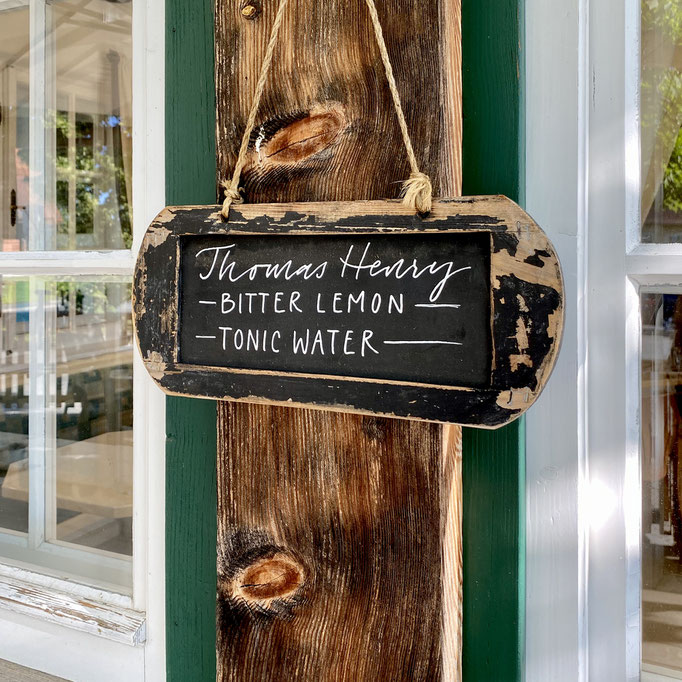 Thomas Henry
- BITTER LEMON -
- TONIC WATER -